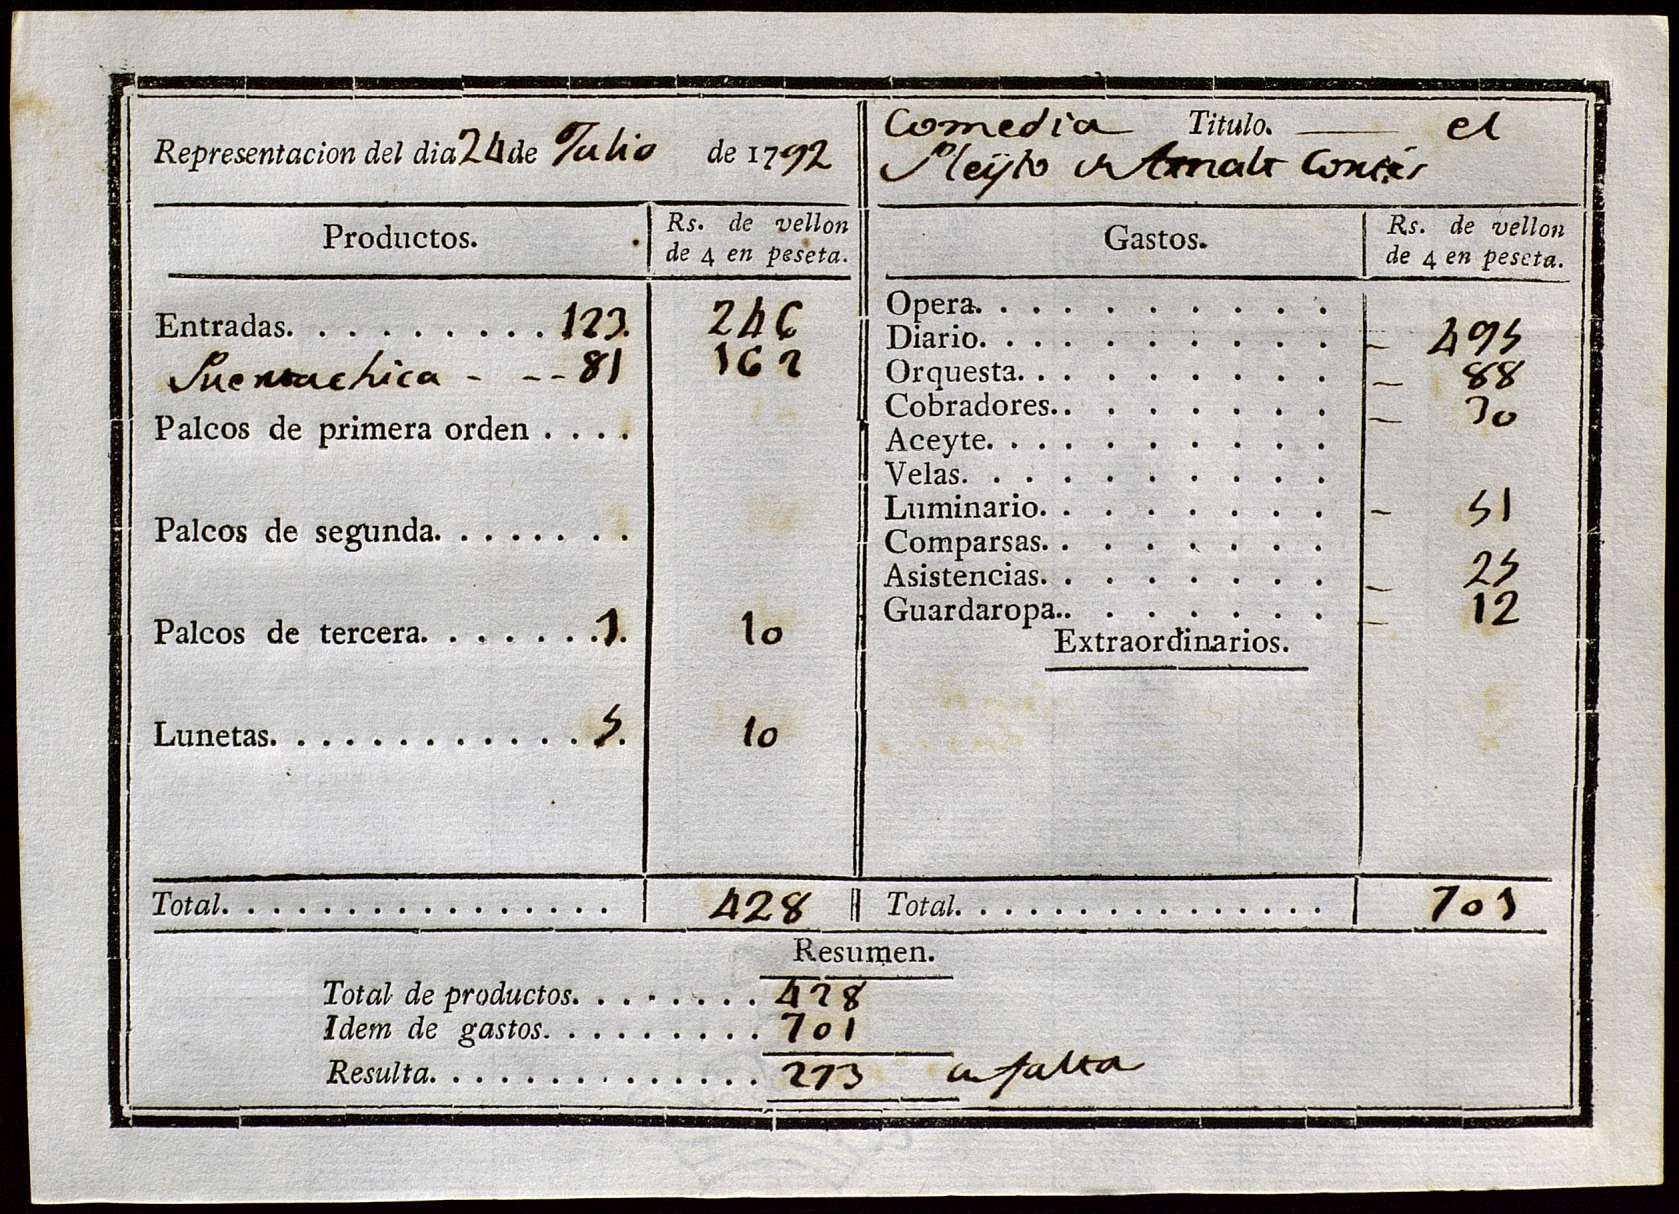 Representacion del dia 24 de Julio de 1792
Comedia Titulo. — el
Pleÿto de Cortés
Productos.
Rs. de vellon
de 4 en peseta.
Gastos.
Rs. de vellon
de 4 en peseta.
Entradas. . . . . . . . . . 123. 246
Puertachica - - - 81 162
Palcos de primera orden . . . .
Palcos de segunda. . . . . . . .
Palcos de tercera. . . . . . . 1. 10
Lunetas. . . . . . . . . . . . . 5. 10
Opera. . . . . . . . . . .
Diario. . . . . . . . . . . - 495
Orquesta. . . . . . . . . - 88
Cobradores. . . . . . . . - 30
Aceyte. . . . . . . . . . .
Velas. . . . . . . . . . .
Luminario. . . . . . . . - 51
Comparsas. . . . . . . .
Asistencias. . . . . . . . - 25
Guardaropa. . . . . . . . - 12
Extraordinarios.
Total. . . . . . . . . . . . . . . . 428
Total. . . . . . . . . . . . . . . . 701
Resumen.
Total de productos. . . . . . . . 428
Idem de gastos. . . . . . . . . . 701
Resulta. . . . . . . . . . . . . . 273 en falta